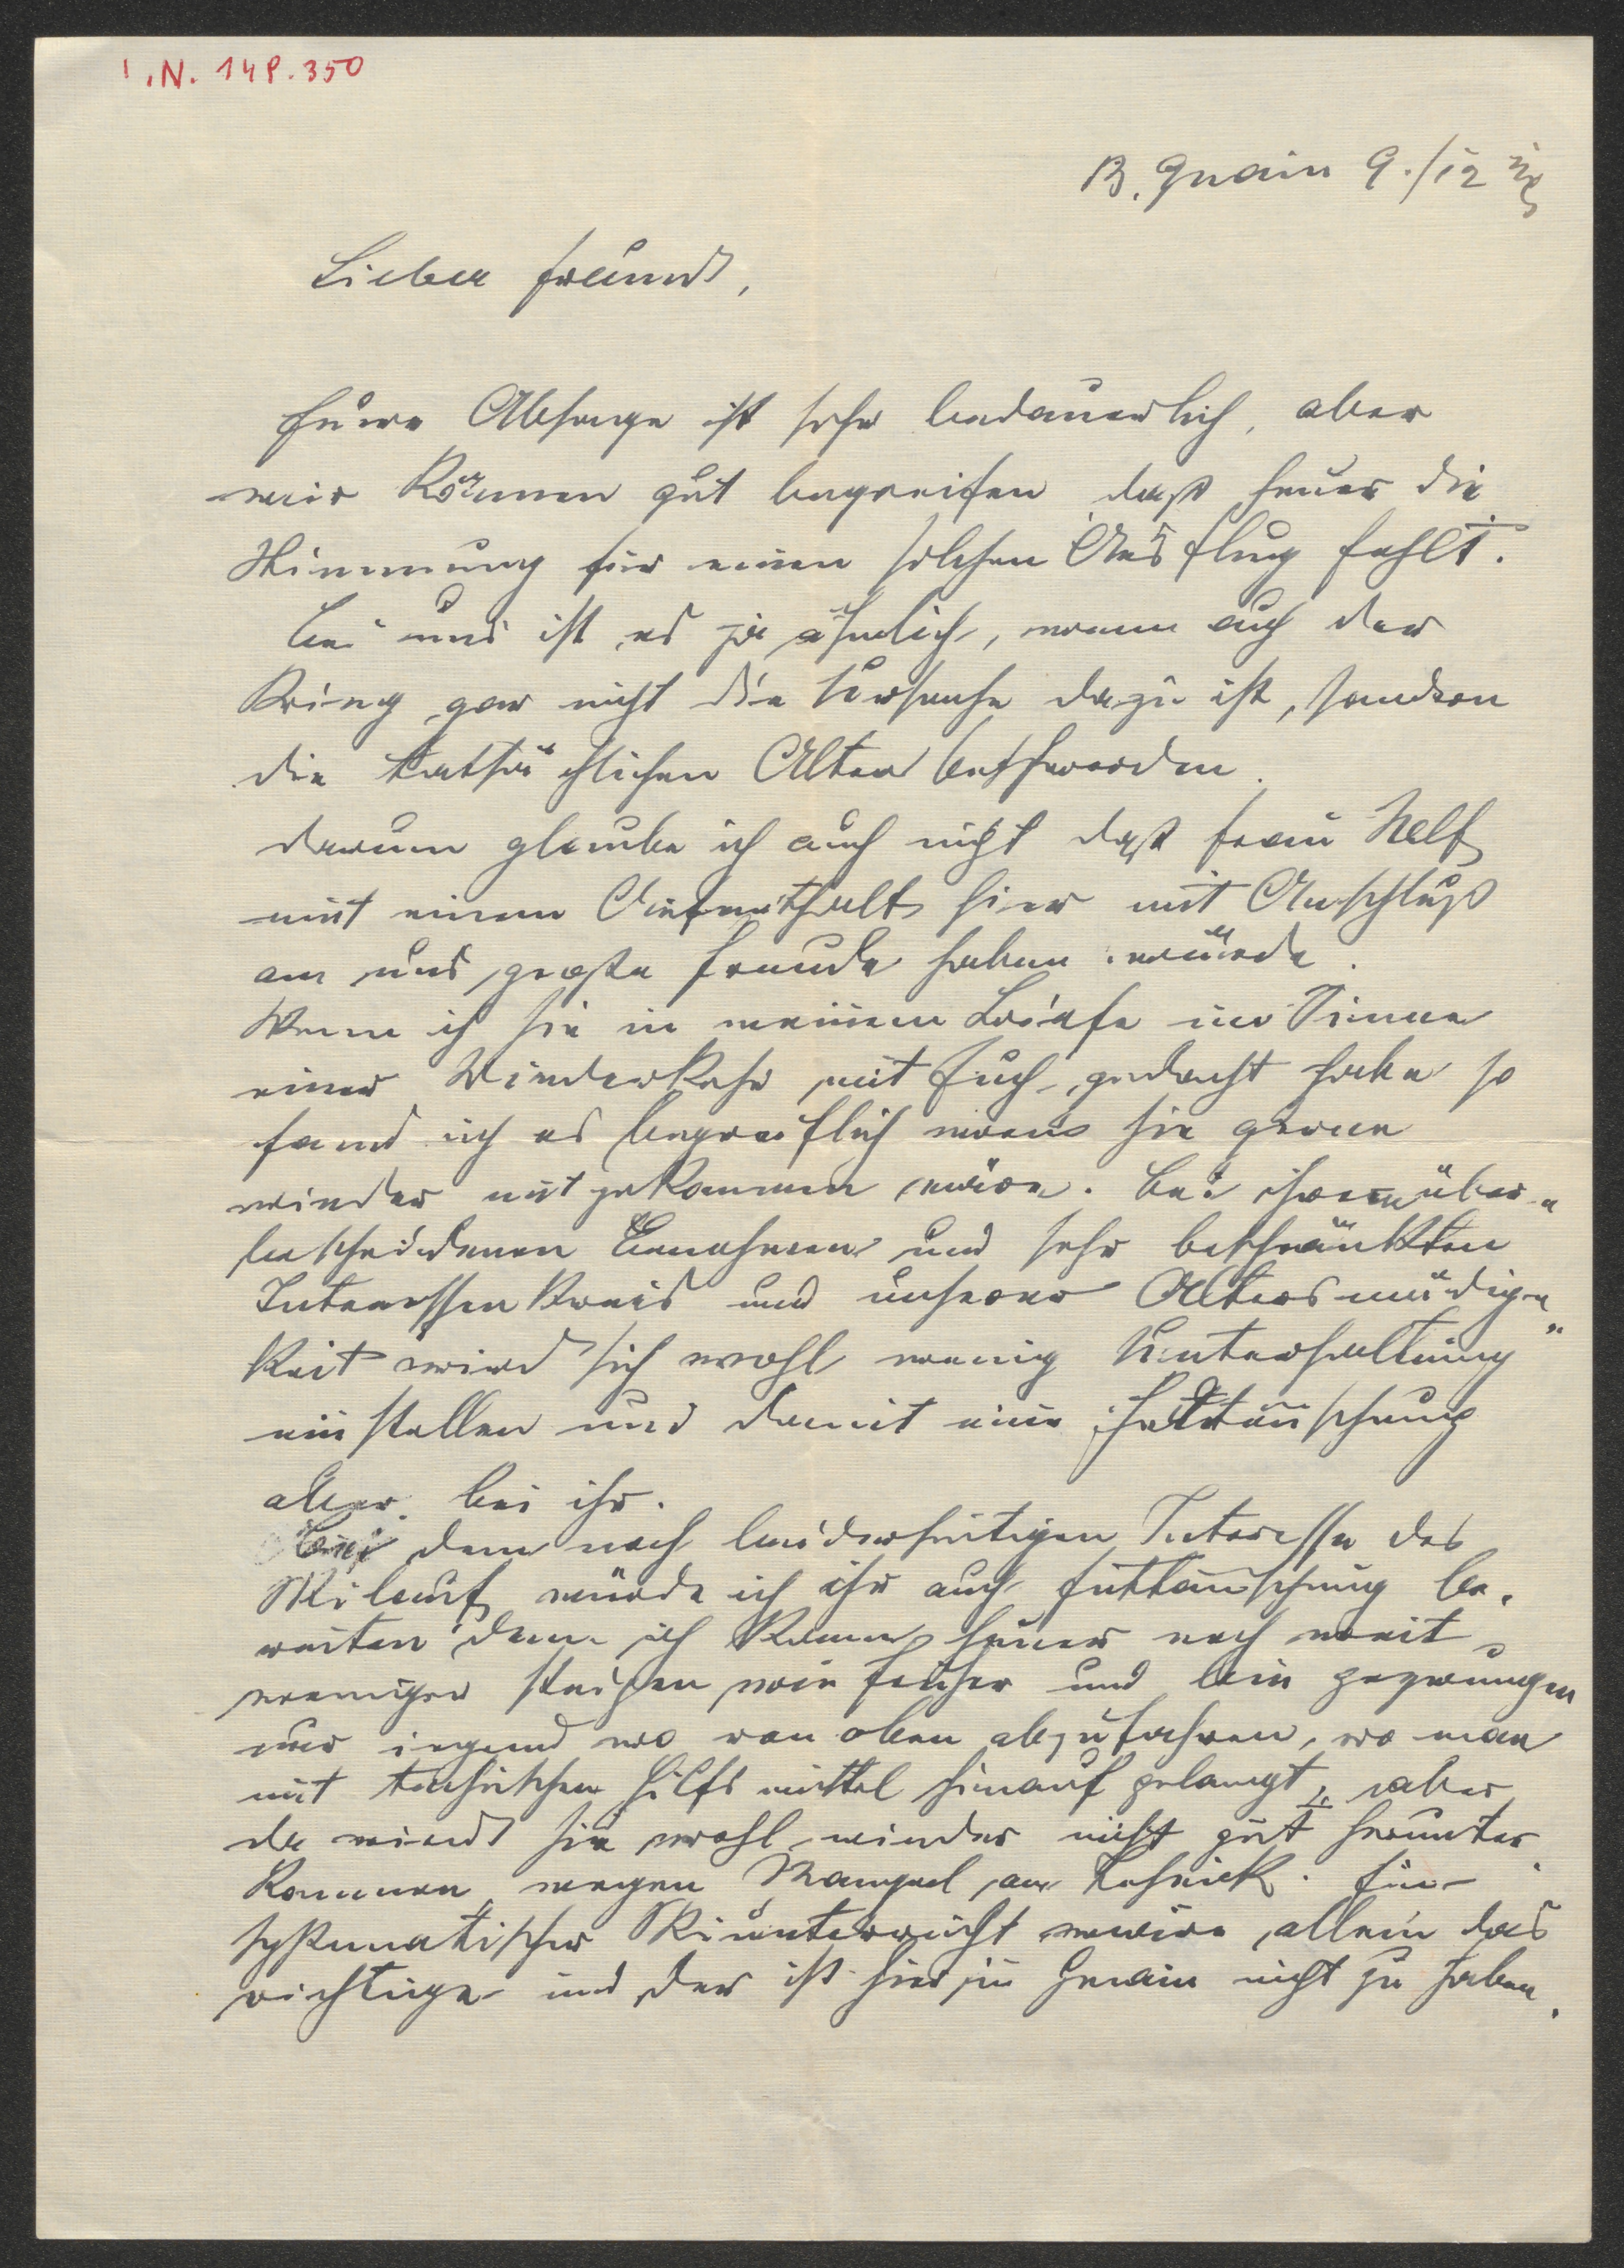 I.N. 148.350
B. Gnain 9./12
Lieber Freund,
Eure Absage ist sehr bedauerlich, aber
wir können gut begreifen daß heuer die
Stimmung für einen solchen Ausflug fehlt.
Bei uns ist es ja ähnlich, wenn auch der
Krieg gar nicht die Ursache dazu ist, sondern
die tatsächlichen Alters beschwerden.
Darum glaube ich auch nicht daß Frau Helf
mit einem Aufenthalt hier mit Anschluß
an uns große Freude haben würde.
Wenn ich sie in meinem Briefe im Sinne
einer Wiederkehr mit Euch gedacht habe so
fand ich es begreiflich wenn sie gerne
wieder mit gekommen wäre. Bei ihrem über-
bescheidenen Benehmen und sehr beschränkten
Interessen Kreis und unserer Altersmüdig-
keit wird sich wohl wenig Unterhaltung
einstellen und damit eine Enttäuschung
aber bei ihr.
Bei dem noch beiderseitigen Interesse des
Skilauf würde ich ihr auch Enttäuschung be-
reiten denn ich kann heuer noch weit
weniger steigen wie früher und bin gezwungen
nur irgend wo von oben abzufahren, wo man
mit technischen Hilfs mittel hinauf gelangt, aber
da wird sie wohl wieder nicht gut herunter
kommen wegen Mangel an Technik. Ein
systematischer Skiunterricht wäre allein das
richtige und der ist hier in Gnain nicht zu haben.